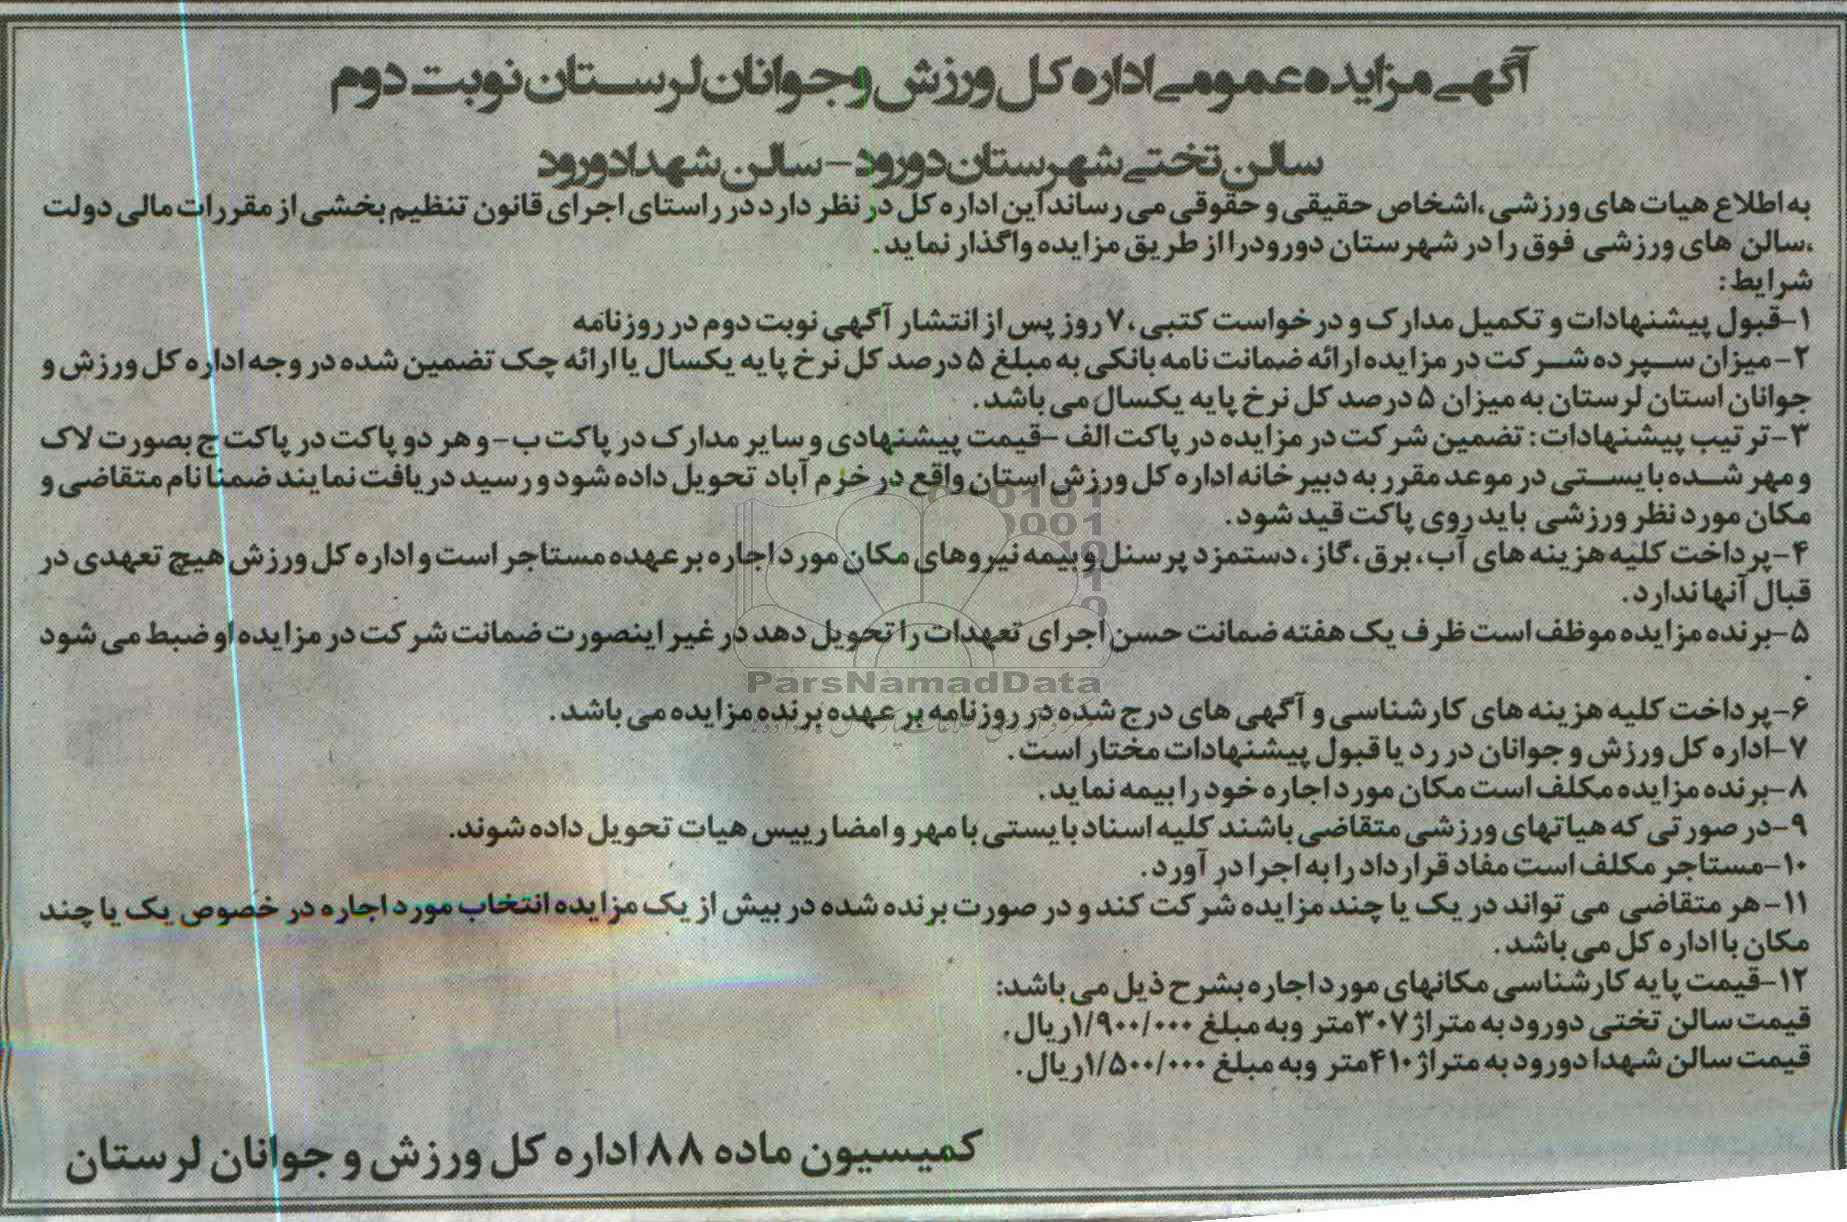 آگهی مزایده عمومی اداره کل ورزش و جوانان لرستان نوبت دوم
سالن تختی شهرستان دورود – سالن شهدا دورود
به اطلاع هیات های ورزشی ،اشخاص حقیقی و حقوقی می رساند این اداره کل در نظر دارد در راستای اجرای قانون تنظیم بخشی از مقررات مالی دولت
،سالن های ورزشی فوق را در شهرستان دورود را از طریق مزایده واگذار نماید.
شرایط:
۱-قبول پیشنهادات و تکمیل مدارک و درخواست کتبی ،۷ روز پس از انتشار آگهی نوبت دوم در روزنامه
۲-میزان سپرده شرکت در مزایده ارائه ضمانت نامه بانکی به مبلغ ۵ درصد کل نرخ پایه یکسال یا ارائه چک تضمین شده در وجه اداره کل ورزش و
جوانان استان لرستان به میزان ۵ درصد کل نرخ پایه یکسال می باشد.
۳-ترتیب پیشنهادات: تضمین شرکت در مزایده در پاکت الف –قیمت پیشنهادی و سایر مدارک در پاکت ب- و هر دو پاکت در پاکت ج بصورت لاک
و مهر شده بایستی در موعد مقرر به دبیرخانه اداره کل ورزش استان واقع در خرم آباد تحویل داده شود و رسید دریافت نمایند ضمنا نام متقاضی و
مکان مورد نظر ورزشی باید روی پاکت قید شود.
۴-پرداخت کلیه هزینه های آب، برق ،گاز، دستمزد پرسنل و بیمه نیروهای مکان مورد اجاره بر عهده مستاجر است و اداره کل ورزش هیچ تعهدی در
قبال آنها ندارد.
۵-برنده مزایده موظف است ظرف یک هفته ضمانت حسن اجرای تعهدات را تحویل دهد در غیر اینصورت ضمانت شرکت در مزایده او ضبط می شود
.
۶-پرداخت کلیه هزینه های کارشناسی و آگهی های درج شده در روزنامه بر عهده برنده مزایده می باشد.
۷-اداره کل ورزش و جوانان در رد یا قبول پیشنهادات مختار است.
۸-برنده مزایده مکلف است مکان مورد اجاره خود را بیمه نماید.
۹-در صورتی که هیاتهای ورزشی متقاضی باشند کلیه اسناد بایستی با مهر و امضا رییس هیات تحویل داده شوند.
۱۰-مستاجر مکلف است مفاد قرارداد را به اجرا در آورد.
۱۱-هر متقاضی می تواند در یک یا چند مزایده شرکت کند و در صورت برنده شده در بیش از یک مزایده انتخاب مورد اجاره در خصوص یک یا چند
مکان با اداره کل می باشد.
۱۲-قیمت پایه کارشناسی مکانهای مورد اجاره بشرح ذیل می باشد:
قیمت سالن تختی دورود به متراژ ۳۰۷متر وبه مبلغ ۱/۹۰۰/۰۰۰ریال.
قیمت سالن شهدا دورود به متراژ ۴۱۰متر وبه مبلغ ۱/۵۰۰/۰۰۰ریال.
کمیسیون ماده ۸۸ اداره کل ورزش و جوانان لرستان
ParsNamadData